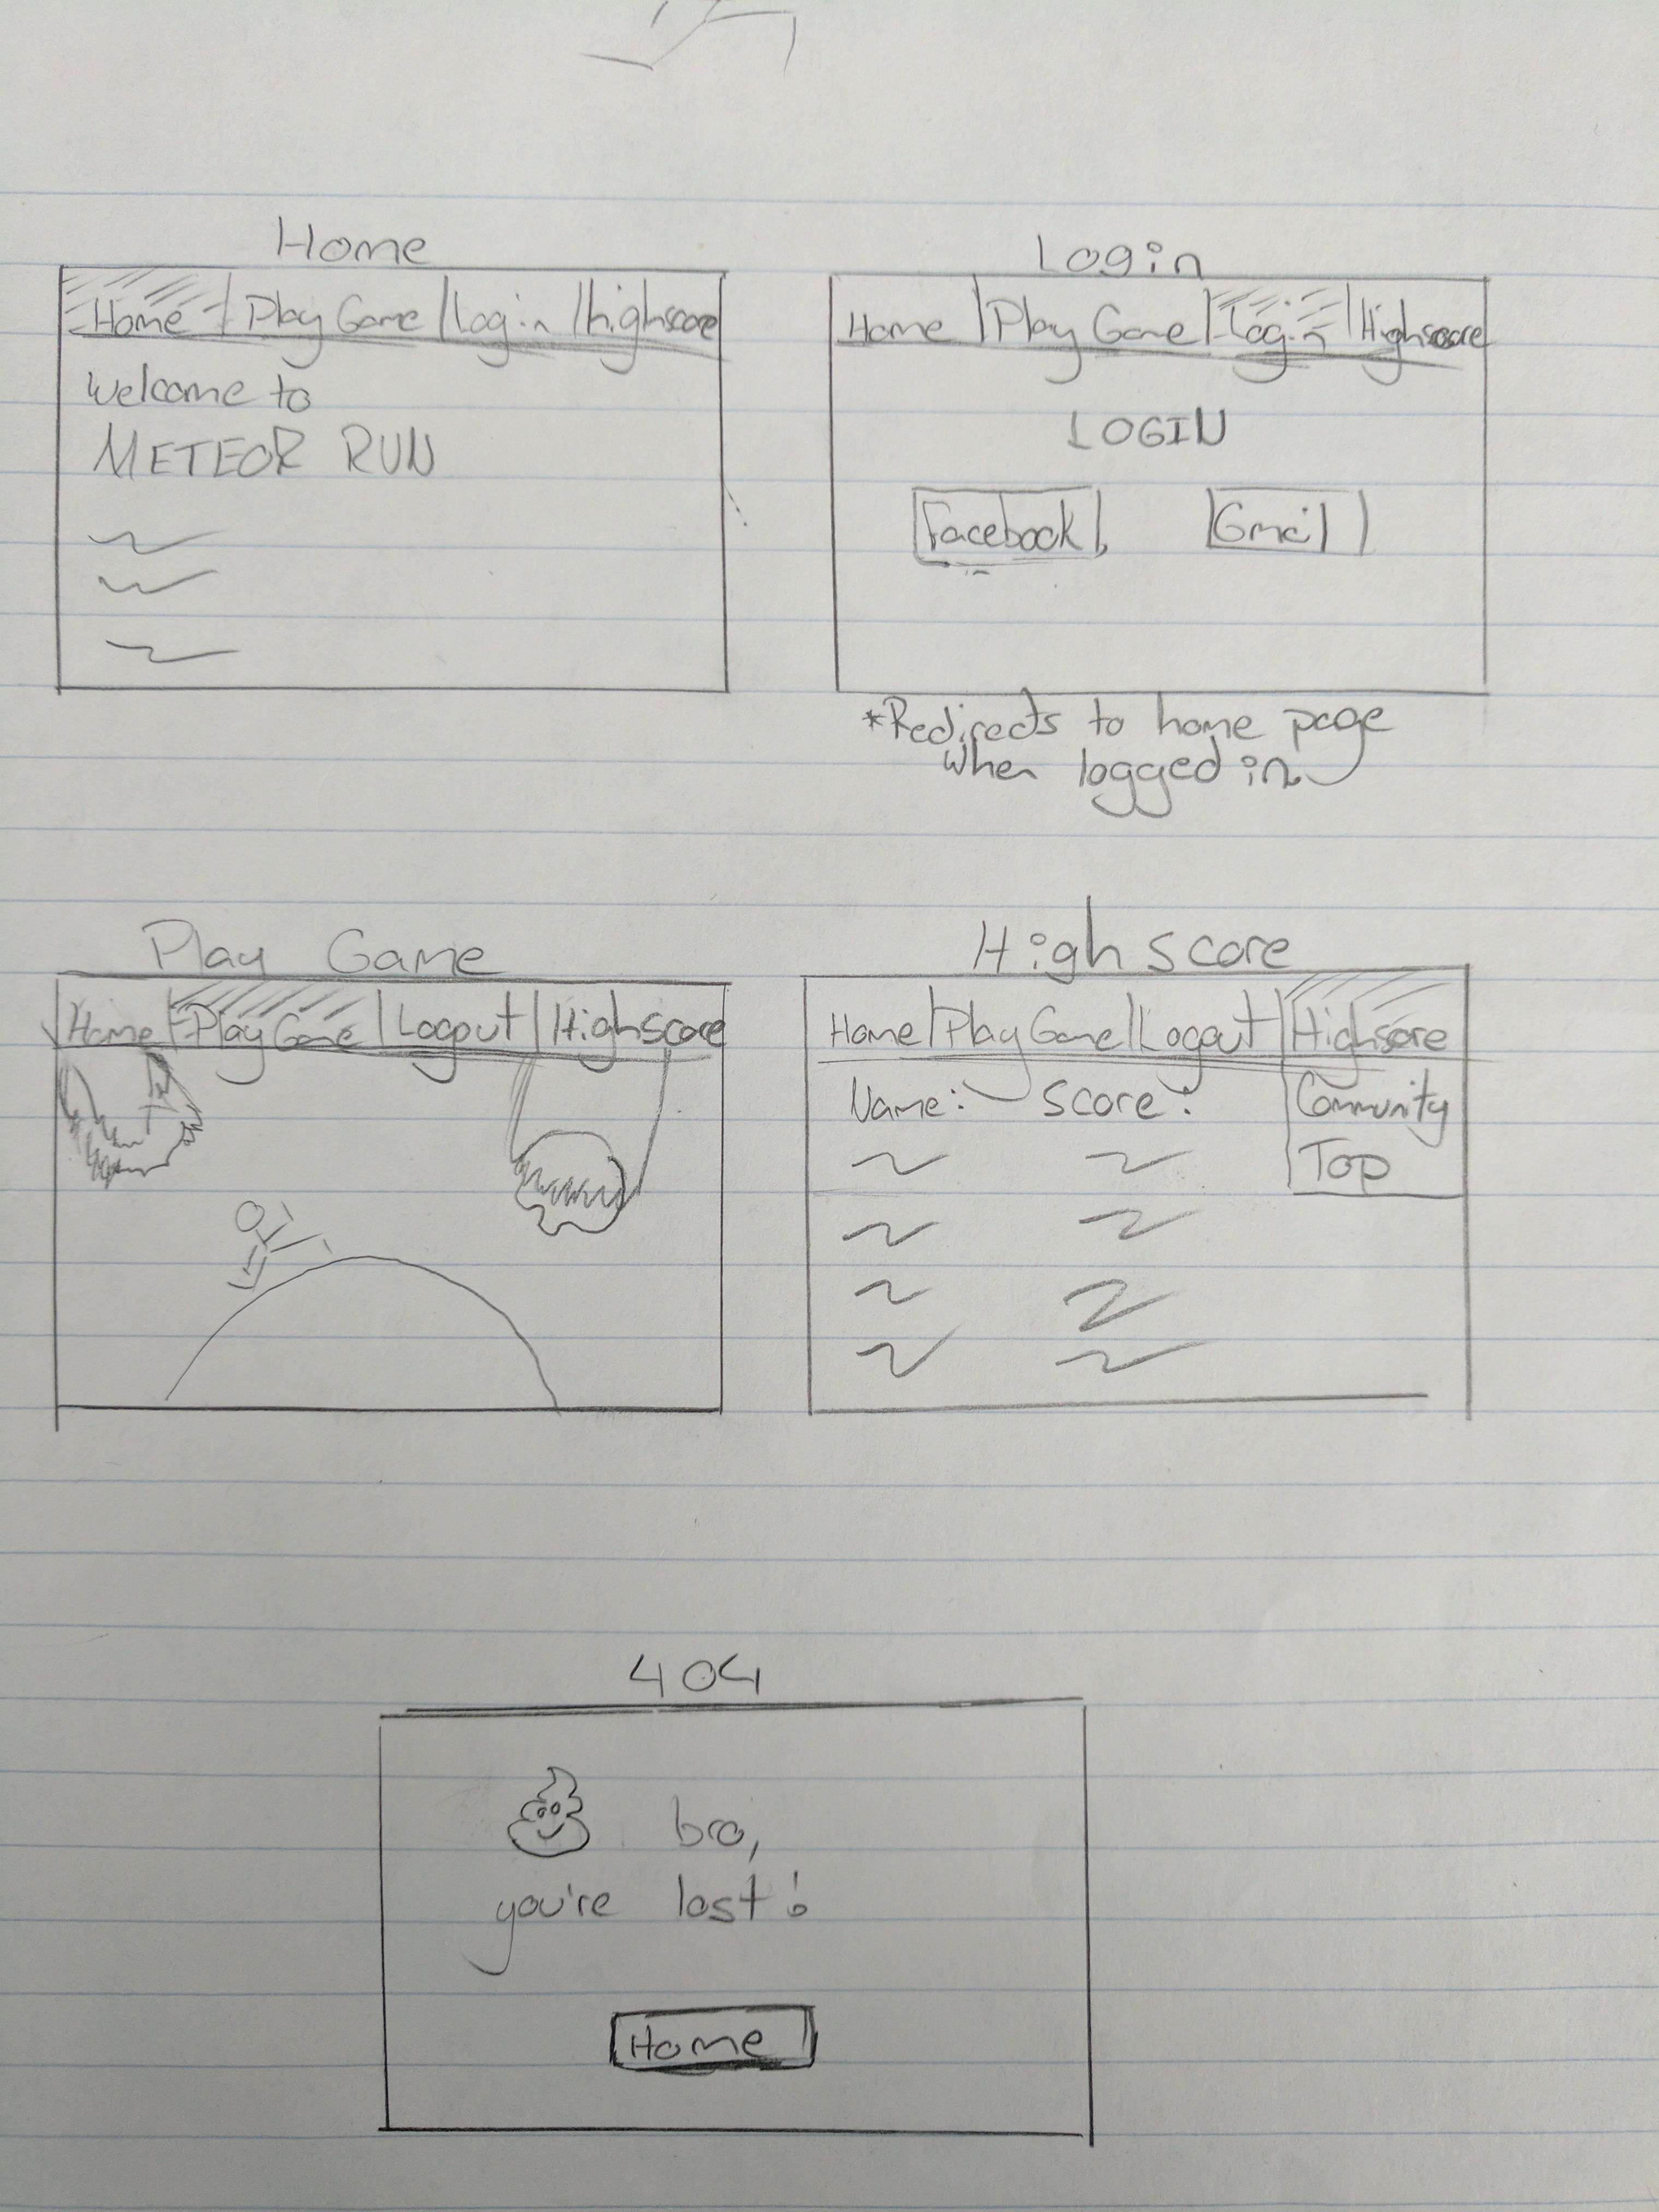 Home
Home | Play Game | Login | Highscore
Welcome to
METEOR RUN
Login
Home | Play Game | Login | Highscore
LOGIN
Facebook Gmail
*Redirects to home page
when logged in
Play Game
Home | Play Game | Logout | Highscore
High score
Home | Play Game | Logout | Highscore
Name: Score: Community
Top
404
bro,
you're lost!
Home